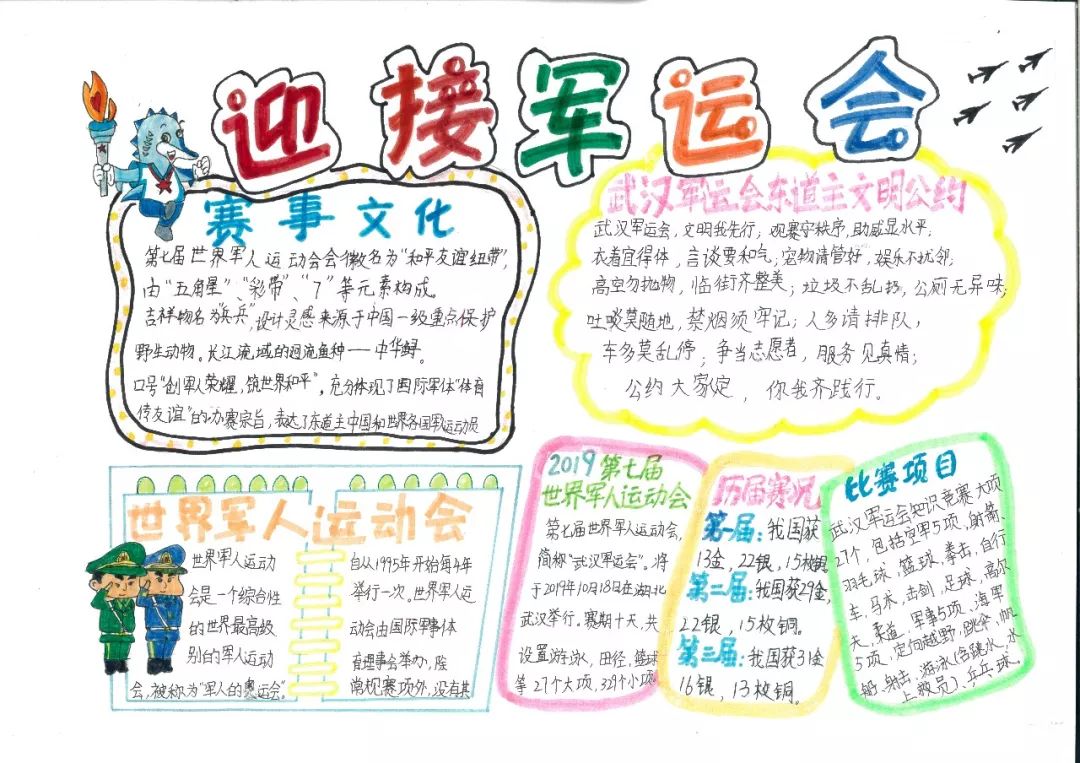 迎接军运会
赛事文化
第七届世界军人运动会会徽名为“和平友谊纽带”,
由“五角星”、“彩带”、“7”等元素构成。
吉祥物名为“兵兵”,设计灵感来源于中国一级重点保护
野生动物。长江流域的洄流鱼种——中华鲟。
口号“创军人荣耀,筑世界和平”,充分体现了国际军体“体育
传友谊”的办赛宗旨,表达了东道主中国和世界各国军运动员
武汉军运会东道主文明公约
武汉军运会,文明我先行;观赛守秩序,助威显水平;
衣着宜得体,言谈要和气;宠物请管好,娱乐不扰邻;
高空勿抛物,临街齐整美;垃圾不乱扔,公厕无异味;
吐啖莫随地,禁烟须牢记;人多请排队,
车多莫乱停;争当志愿者,服务见真情;
公约大家定,你我齐践行。
世界军人运动会
世界军人运动
会是一个综合性
的世界最高级
别的军人运动
会,被称为“军人的奥运会”。
自从1995年开始每4年
举行一次。世界军人运
动会由国际军事体
育理事会举办,除
常规赛项外,没有其
2019第七届
世界军人运动会
第七届世界军人运动会,
简称“武汉军运会”。将
于2019年10月18日在湖北
武汉举行。赛期十天,共
设置游泳,田径,篮球
等27个大项,329个小项
历届赛况
第一届:我国获
13金,22银,15枚铜
第二届:我国获29金,
22银,15枚铜。
第三届:我国获31金
16银,13枚铜。
比赛项目
武汉军运会知识竞赛大项
27个,包括空军5项,射箭、
羽毛球,篮球,拳击,自行
车,马术,击剑,足球,高尔
夫,柔道,军事5项,海军
5项,定向越野,跳伞,帆
船,射击,游泳(含跳水,水
上救员)、乒乓球。